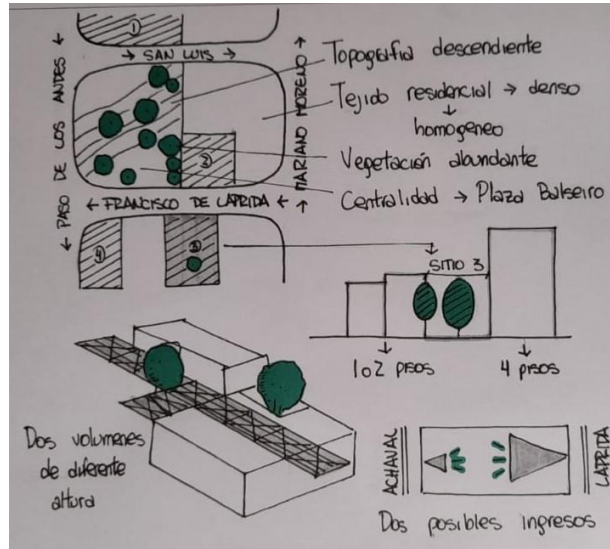 ①
→ SAN LUIS →
PASO DE LOS ANDES
MARIANO MORENO
Topografia descendiente
Tejido residencial → denso
↓
homogeneo
②
Vegetación abundante
Centralidad → Plaza Balseiro
← FRANCISCO DE LAPRIDA ←
④
③
SITIO 3
1 o 2 PISOS
4 PISOS
Dos volumenes
de diferente
altura
ACHAVAL
LAPRIDA
Dos posibles ingresos